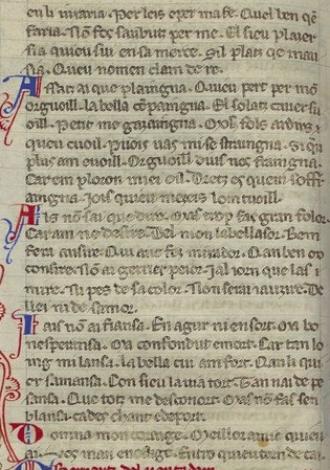 en li uiraria. Per leis er er ma fe. Quel ben qe
faria. Sim fos saubut per me. El sieu plaiser
sia quieu siu en sa merce. Sil plaz qe mau
sia. Quieu no men clam de re.
Affaz ai que plaingna. Quieu pert per mo
orguoill. La bella cōpaingna. El solatz cauer su
oill. Petit me gazaingna. Q̄l fols ardiz q̄
quieu cuoill. Puois uas mi se straingna. Si q̄
plus am e uoill. Orguoill dieus nos fraingna.
Car em ploron miei oill. Dretz es quem soffr
aingna. Iois quieu mezeis lom tuoill.
Als non sai que dire. Mas trop faz gran folor.
Car am ne desire. Del mon la bellasor. Ben
fera ausire. Qui anc fez mirador. Qan ben o
consire. Non ai gerrier peior. Ial iorn que las
mire. Ni pes de sa color. Non serai iauzire. De
liei ni de samor.
Iais non ai fiansa. En agur ni en sort. Ma bo
nesperansa. Ma confondut e mort. Car tan lo
ing mi lansa. La bella cui am fort. Qan li qui
er samansa. Con sieu lauia tort. Tan nai de pe
sansa. Que tot me desconort. Mas non faz sen
blansa. Cades chant e deport.
Domna mon coratge. Meillor amic quieu
ai. Vos man en ostatge. Entro quieu torn de cai